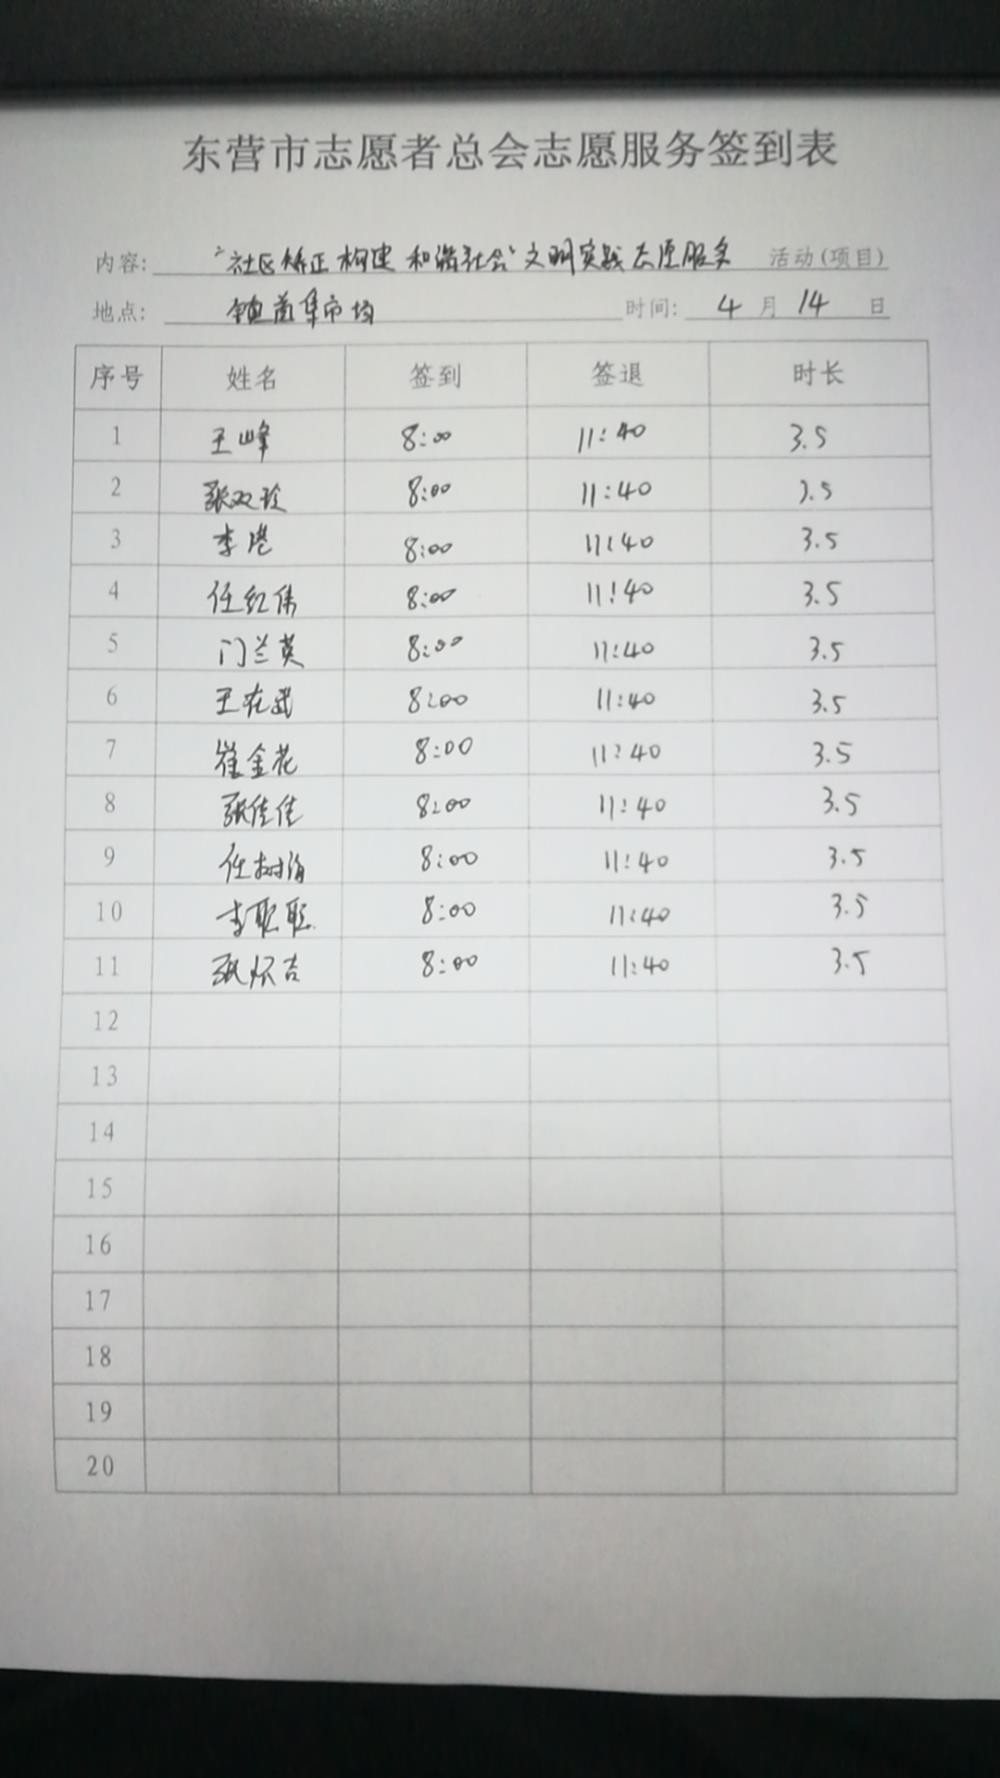 东营市志愿者总会志愿服务签到表
内容: "社区矫正 构建 和谐社会"文明实践志愿服务 活动(项目)
地点: 镇前集市场 时间: 4 月 14 日
序号 姓名 签到 签退 时长
1 王峰 8:00 11:40 3.5
2 张双玲 8:00 11:40 3.5
3 李 8:00 11:40 3.5
4 任红伟 8:00 11:40 3.5
5 门兰英 8:00 11:40 3.5
6 王在武 8:00 11:40 3.5
7 崔金花 8:00 11:40 3.5
8 张佳佳 8:00 11:40 3.5
9 任树海 8:00 11:40 3.5
10 李聪聪 8:00 11:40 3.5
11 张怀吉 8:00 11:40 3.5
12
13
14
15
16
17
18
19
20